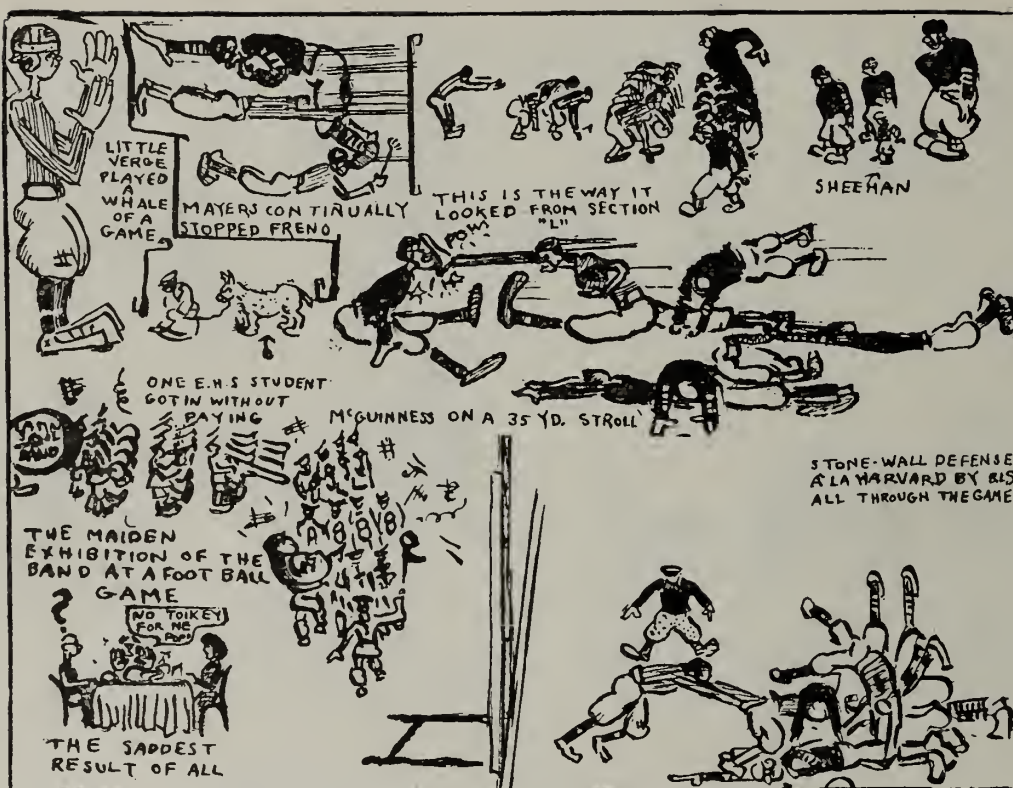 LITTLE
VERGE
PLAYED
A
WHALE
OF A
GAME
MAYERS CONTINUALLY
STOPPED FRENO
THIS IS THE WAY IT
LOOKED FROM SECTION
"L"
SHEEHAN
POW
ONE E.H.S STUDENT
GOT IN WITHOUT
PAYING
McGUINNESS ON A 35 YD. STROLL
STONE-WALL DEFENSE
A LA HARVARD BY
ALL THROUGH THE GAME
BAND
THE MAIDEN
EXHIBITION OF THE
BAND AT A FOOT BALL
GAME
NO TOIKEY
FOR ME
POP!
THE SADDEST
RESULT OF ALL